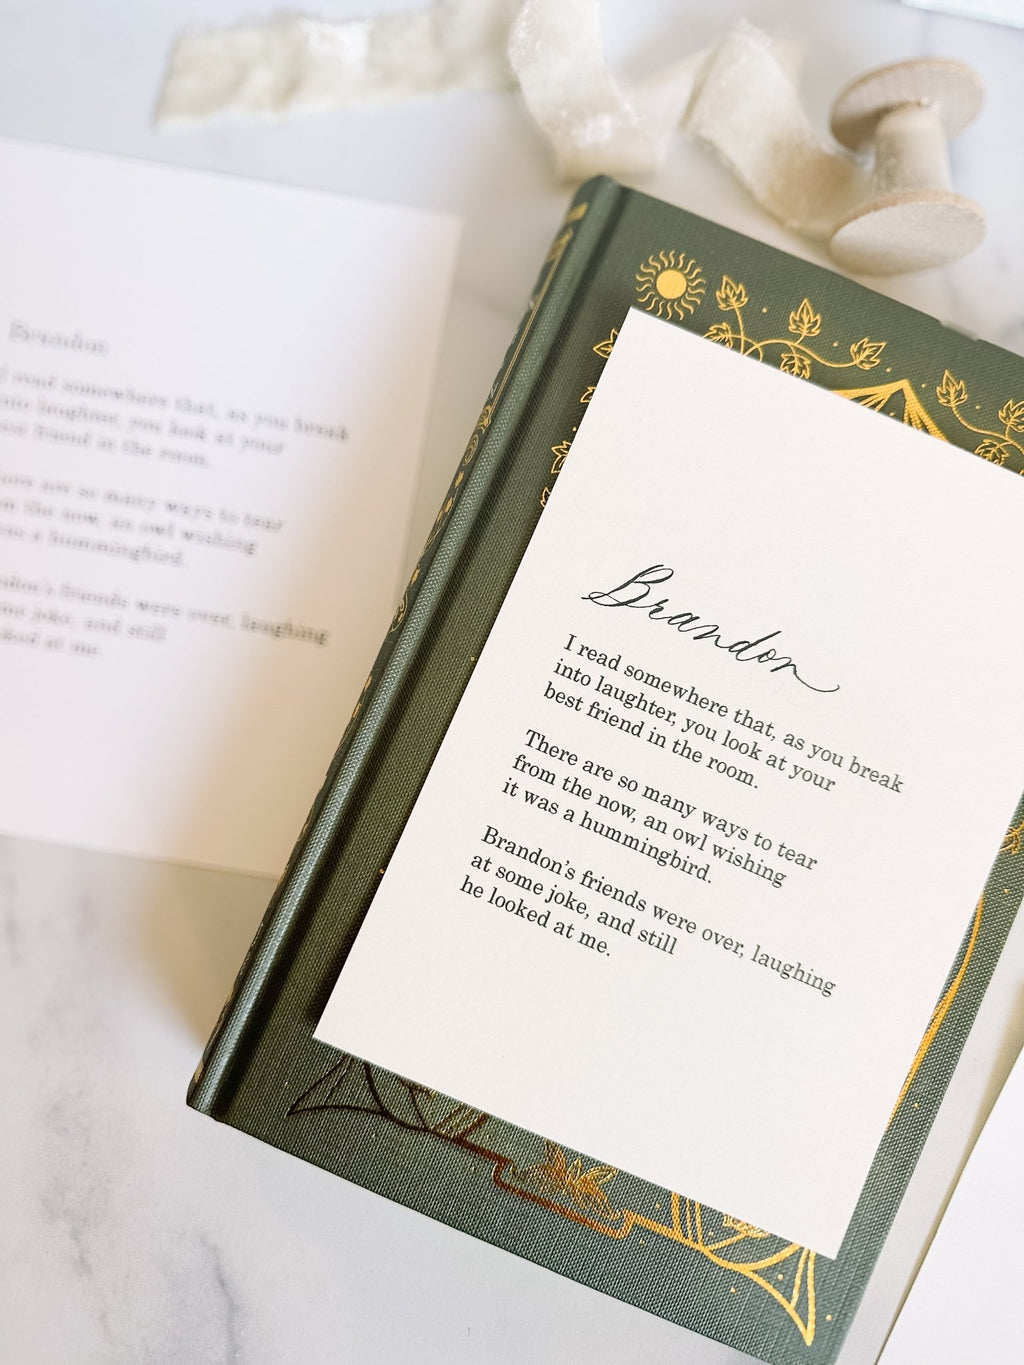 Brandon
I read somewhere that, as you break
into laughter, you look at your
best friend in the room.
There are so many ways to tear
from the now, an owl wishing
it was a hummingbird.
Brandon's friends were over, laughing
at some joke, and still
he looked at me.
Brandon
read somewhere that, as you break
into laughter, you look at your
friend in the room.
are so many ways to tear
the now, an owl wishing
was a hummingbird.
friends were over, laughing
joke, and still
looked at me.